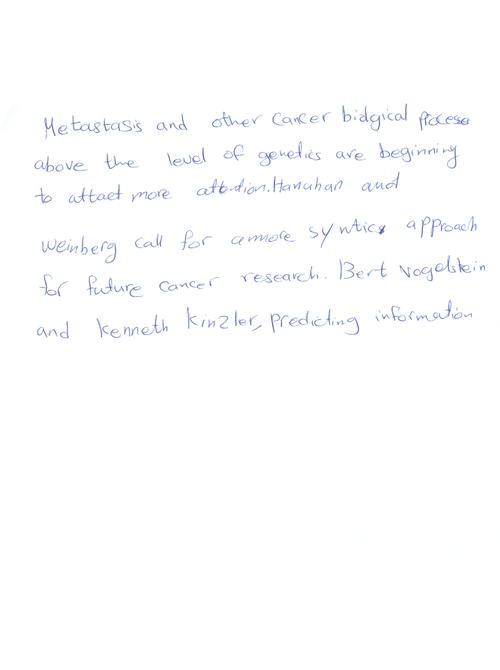 Metastasis and other cancer bidgical process
above the level of genetics are beginning
to attact more attbntion. Hanahan and
weinberg call for a more syntics approach
for future cancer research. Bert Vogelstein
and Kenneth Kinzler, predicting information